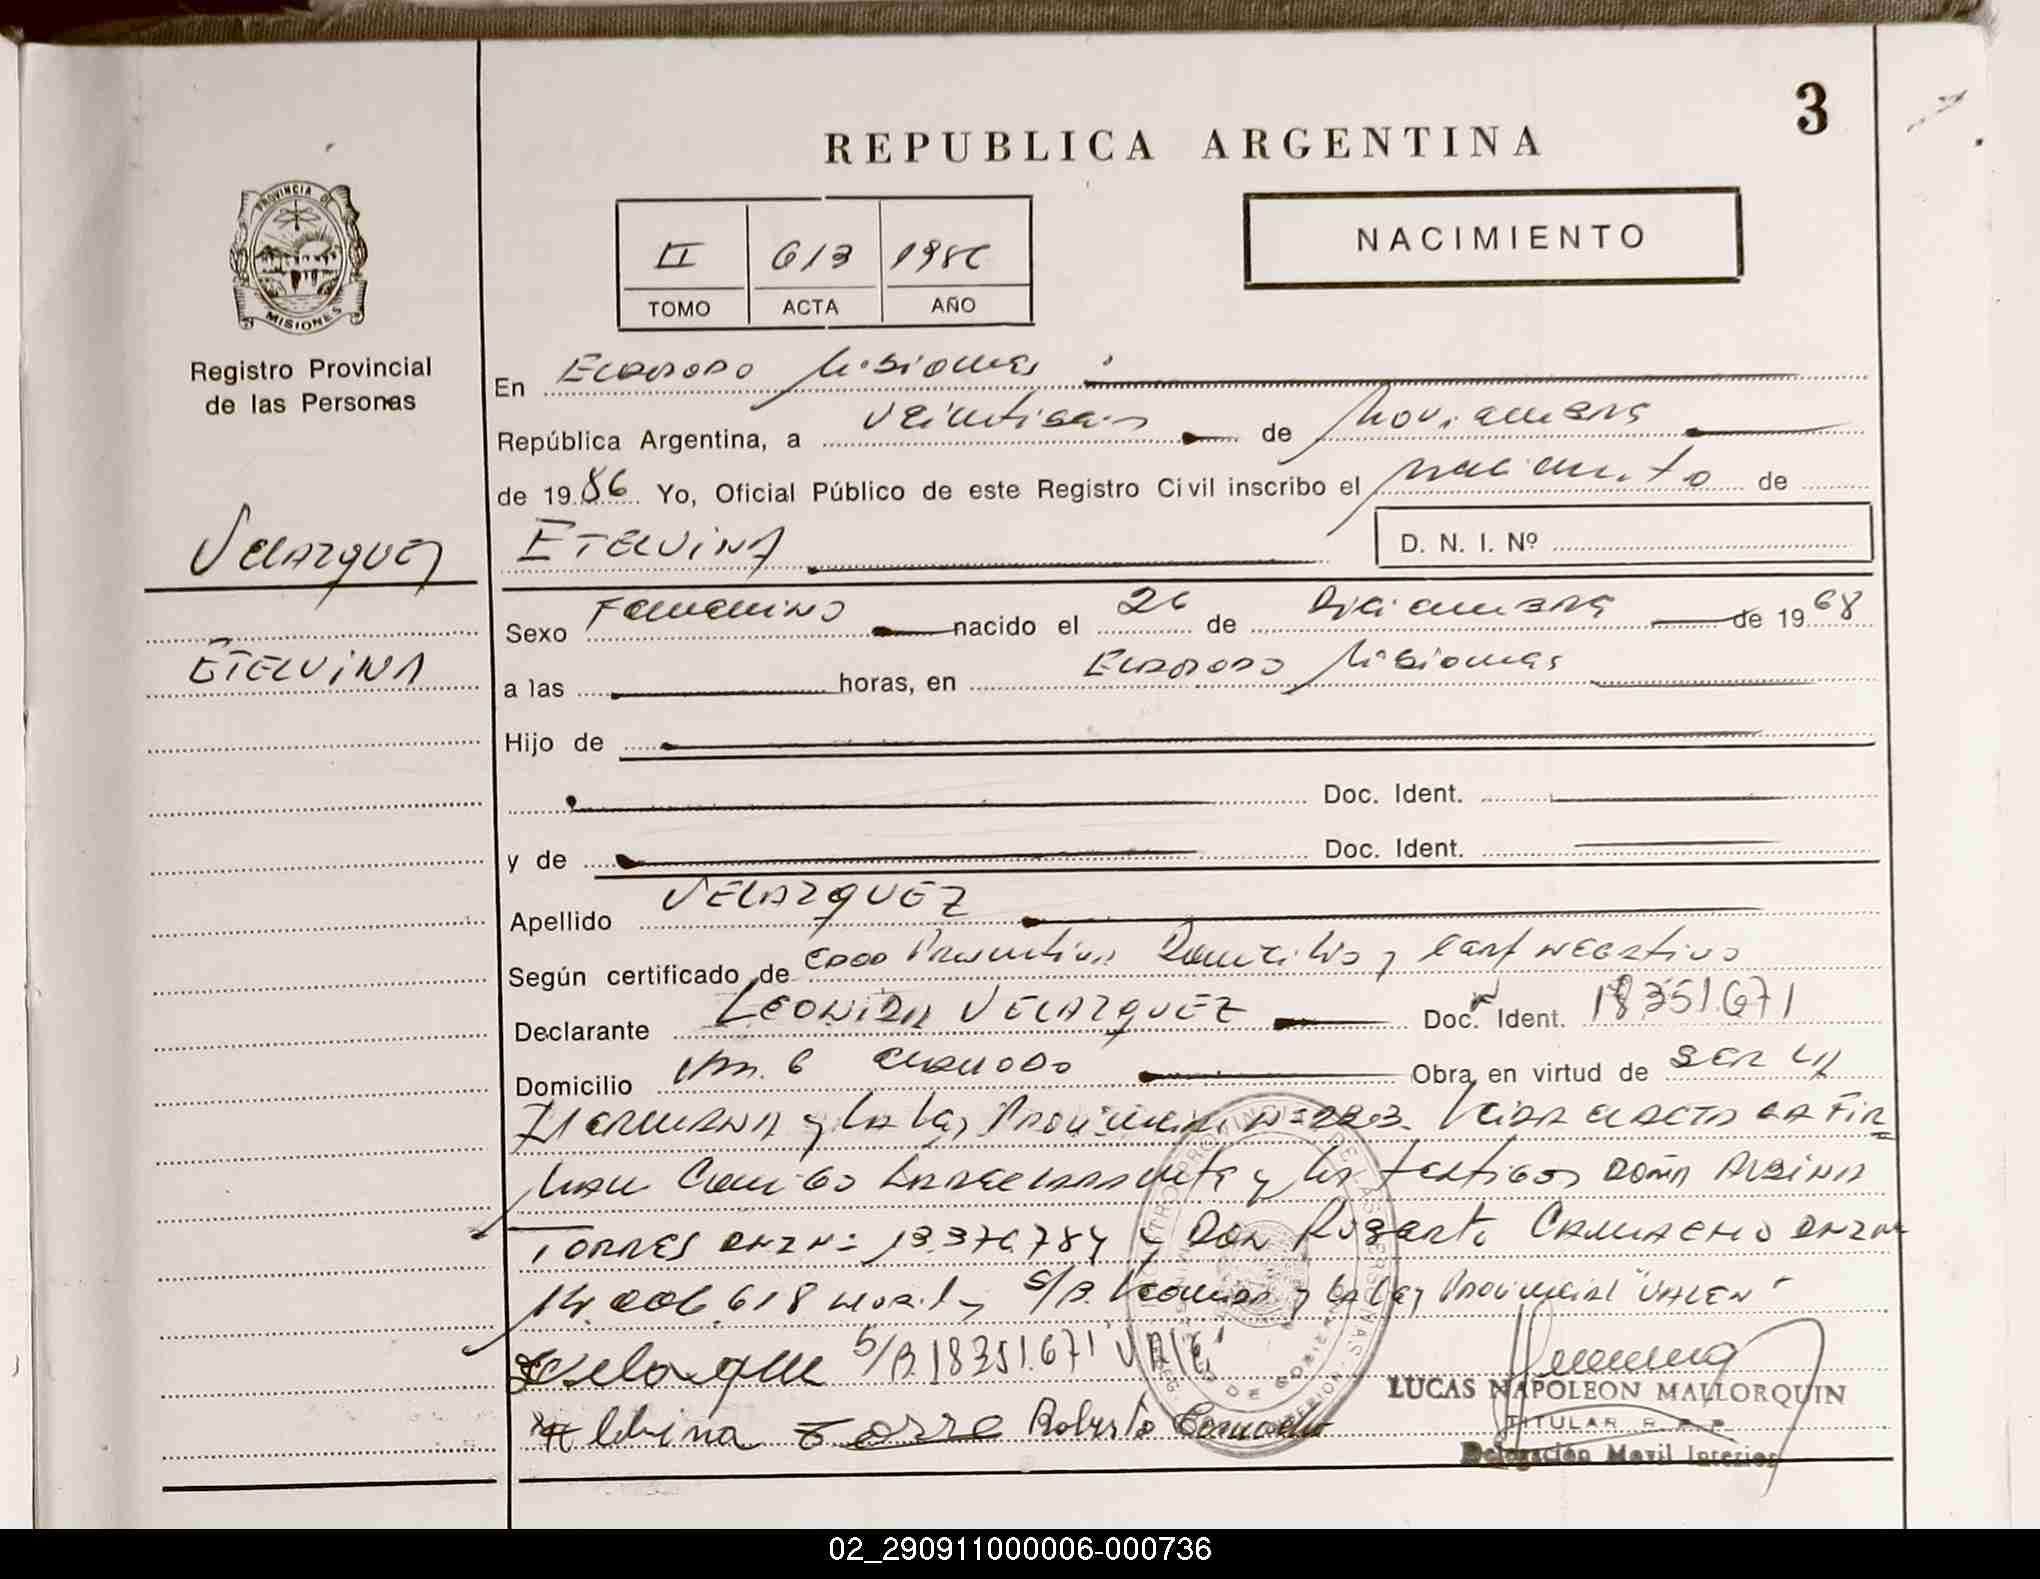 3
REPUBLICA ARGENTINA
PROVINCIA DE
MISIONES
Registro Provincial
de las Personas
II 613 1986
TOMO ACTA AÑO
NACIMIENTO
En ELDORADO Misiones
República Argentina, a veintiseis de Noviembre
de 1986 Yo, Oficial Público de este Registro Civil inscribo el nacimiento de
VELAZQUEZ
ETELVINA
ETELVINA
D. N. I. Nº
Sexo Femenino nacido el 26 de Diciembre de 1968
a las horas, en ELDORADO Misiones
Hijo de
Doc. Ident.
y de Doc. Ident.
Apellido VELAZQUEZ
Según certificado de Domicilio y NEGATIVO
Declarante LEONIDA VELAZQUEZ Doc. Ident. 18.351.671
Domicilio Km. 6 ELDORADO Obra en virtud de SER LA
HERMANA y LA Ley Provincial Nº 2203. Leida el ACTA LA FIR
MAN Conmigo LA DECLARANTE y los testigos DOÑA ALBINA
TORRES DNI Nº 13.376.784 y DON Roberto CAMACHO DNI Nº
14.006.618 S/B. Leonida y la Ley Provincial "VALEN"
S/B. 18351.671 "VALE"
Albina Torre Roberto Camacho
LUCAS NAPOLEON MALLORQUIN
TITULAR R. P. P.
Delegación Movil Interior
02_290911000006-000736